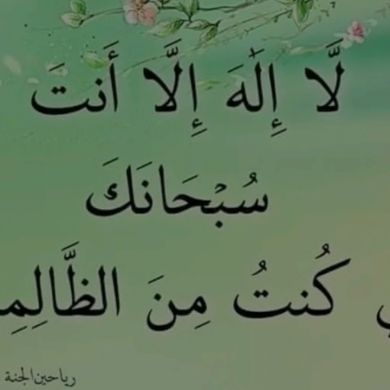 لَّا إِلَٰهَ إِلَّا أَنتَ
سُبْحَانَكَ
كُنتُ مِنَ الظَّالِمِ
رياحين الجنة